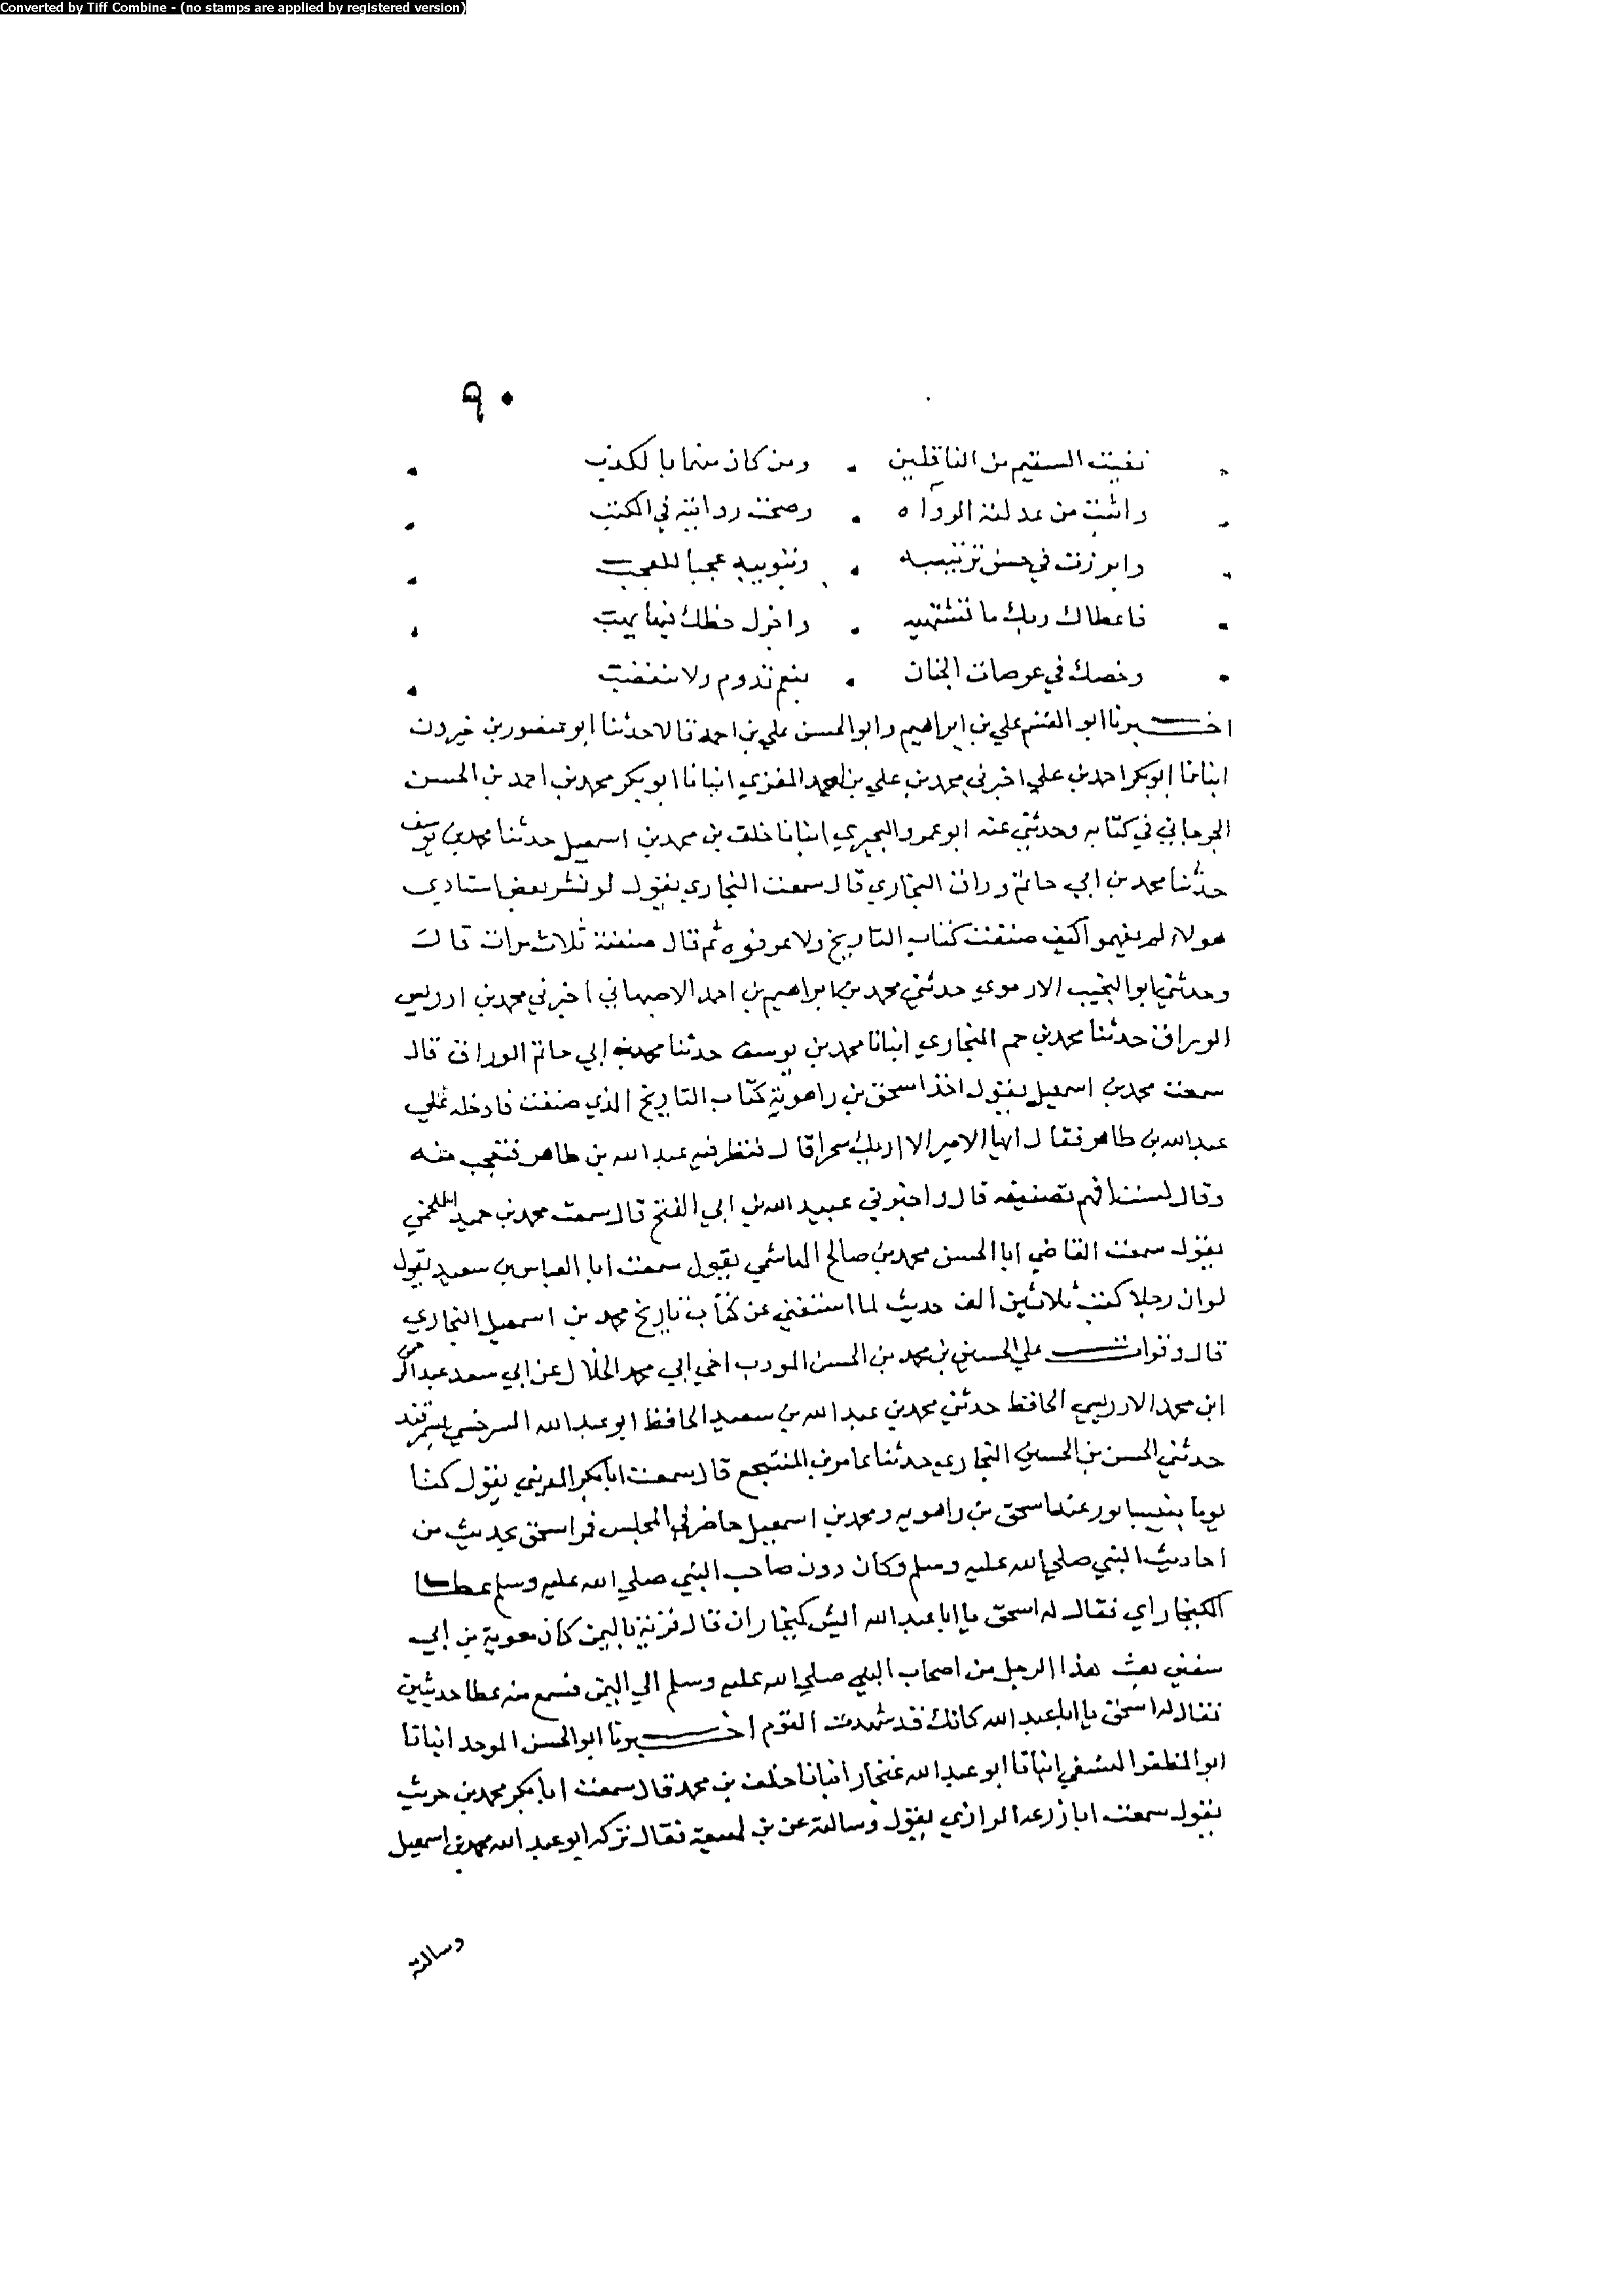 Converted by Tiff Combine - (no stamps are applied by registered version)
٩٠
نفيت السقيم من الناقلين . ومن كان متهما بالكذب
واثبت من عدلته الرواه . وصحت روايته في الكتب
وابرزت في حسن ترتيبه . وتبويبه عجبا للعجب
فاعطاك ربك ما تشتهيه . واجزل حظك فيما يهب
وخصك في عرصات الجنان . بنعم تدوم ولا تنقضب
اخبرنا ابو القسم علي بن ابراهيم وابو الحسن علي بن احمد قالا حدثنا ابو منصور بن خيرون
انبانا ابو بكر احمد بن علي اخبرني محمد بن علي بن احمد المقري انبانا ابو بكر محمد بن احمد بن الحسن
الجرجاني في كتابه وحدثني عنه ابو عمرو البحيري انبانا خلف بن محمد بن اسمعيل حدثنا محمد بن يوسف
حدثنا محمد بن ابي حاتم وراق البخاري قال سمعت البخاري يقول لو نشر بعض استادي
هولاء لم يفهموا كيف صنفت كتاب التاريخ ولا عرفوه ثم قال صنفته ثلاث مرات قال
وحدثني ابو النجيب الارموي حدثني محمد بن ابراهيم بن احمد الاصبهاني اخبرني محمد بن ادريس
الوراق حدثنا محمد بن حم البخاري انبانا محمد بن يوسف حدثنا محمد بن ابي حاتم الوراق قال
سمعت محمد بن اسمعيل يقول اخذ اسحق بن راهوية كتاب التاريخ الذي صنفت فادخله علي
عبد الله بن طاهر فقال ايها الامير الا اريك سحرا قال فنظر فيه عبد الله بن طاهر فتعجب منه
وقال لست افهم تصنيفه قال واخبرني عبيد الله بن ابي الفتح قال سمعت محمد بن حميد اللخمي
يقول سمعت القاضي ابا الحسن محمد بن صالح الهاشمي يقول سمعت ابا العباس بن سعيد يقول
لو ان رجلا كتب ثلاثين الف حديث لما استغني عن كتاب تاريخ محمد بن اسمعيل البخاري
قال وقرات علي الحسين بن محمد بن الحسن المودب اخي ابي محمد الخلال عن ابي سعد عبد الرحمن
ابن محمد الادريسي الحافظ حدثني محمد بن عبد الله بن سعيد الحافظ ابو عبد الله السرخسي بسمرقند
حدثني الحسن بن الحسين البخاري حدثنا عامر بن المنتجع قال سمعت ابا بكر المديني يقول كنا
يوما بنيسابور عند اسحق بن راهويه ومحمد بن اسمعيل حاضر في المجلس فمر اسحق بحديث من
احاديث النبي صلي الله عليه وسلم وكان دون صاحب النبي صلي الله عليه وسلم عطا
الكيخاراي فقال له اسحق يا ابا عبد الله اليش كيخاران قال قرية باليمن كان معوية بن ابي
سفين بعث هذا الرجل من اصحاب النبي صلي الله عليه وسلم الي اليمن فسمع منه عطا حديثين
فقال له اسحق يا ابا عبد الله كانك قد شهدت القوم اخبرنا ابو الحسن الموحد انبانا
ابو المظفر النسفي انبانا ابو عبد الله غنجار انبانا خلف بن محمد قال سمعت ابا بكر محمد بن حريث
يقول سمعت ابا زرعه الرازي يقول وسالته عن بن لهيعة فقال تركه ابو عبد الله محمد بن اسمعيل
وسالته